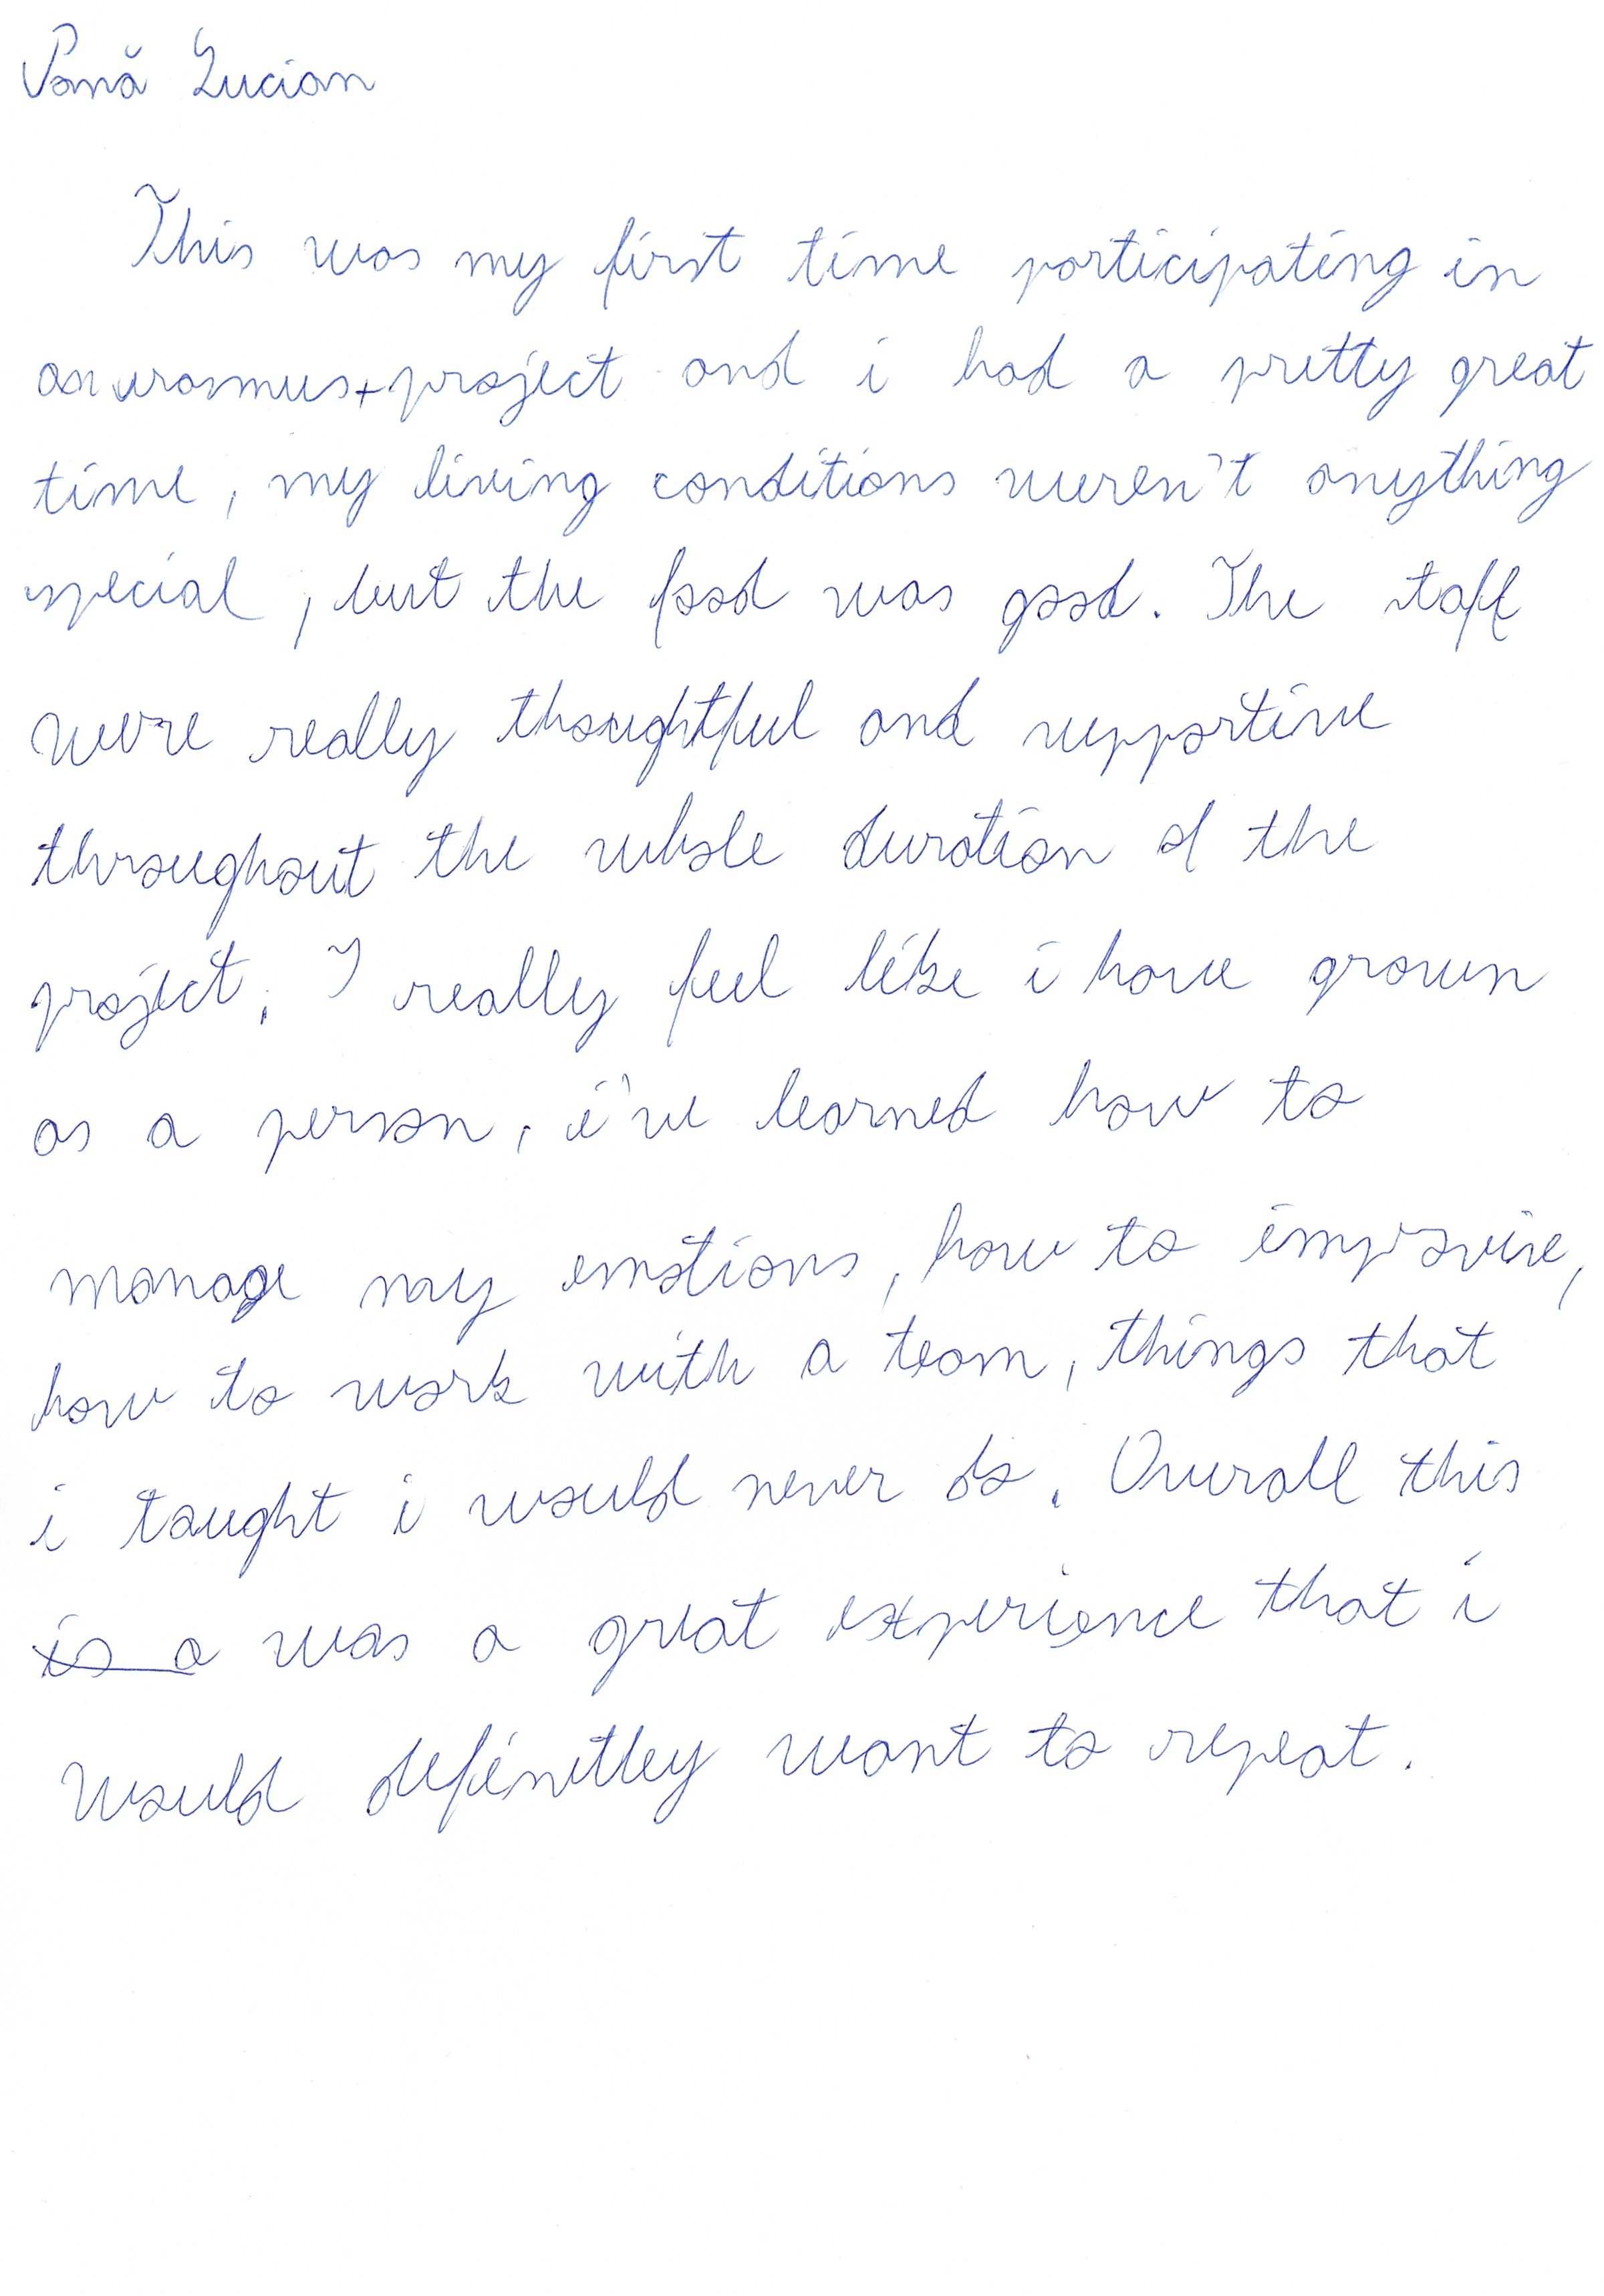 Pană Lucian
This was my first time participating in
an erasmus+ project and i had a pretty great
time, my living conditions weren't anything
special, but the food was good. The staff
were really thoughtful and supportive
throughout the whole duration of the
project. I really feel like i have grown
as a person, i've learned how to
manage my emotions, how to improvise,
how to work with a team, things that
i tought i would never do. Overall this
is a was a great experience that i
would definitley want to repeat.